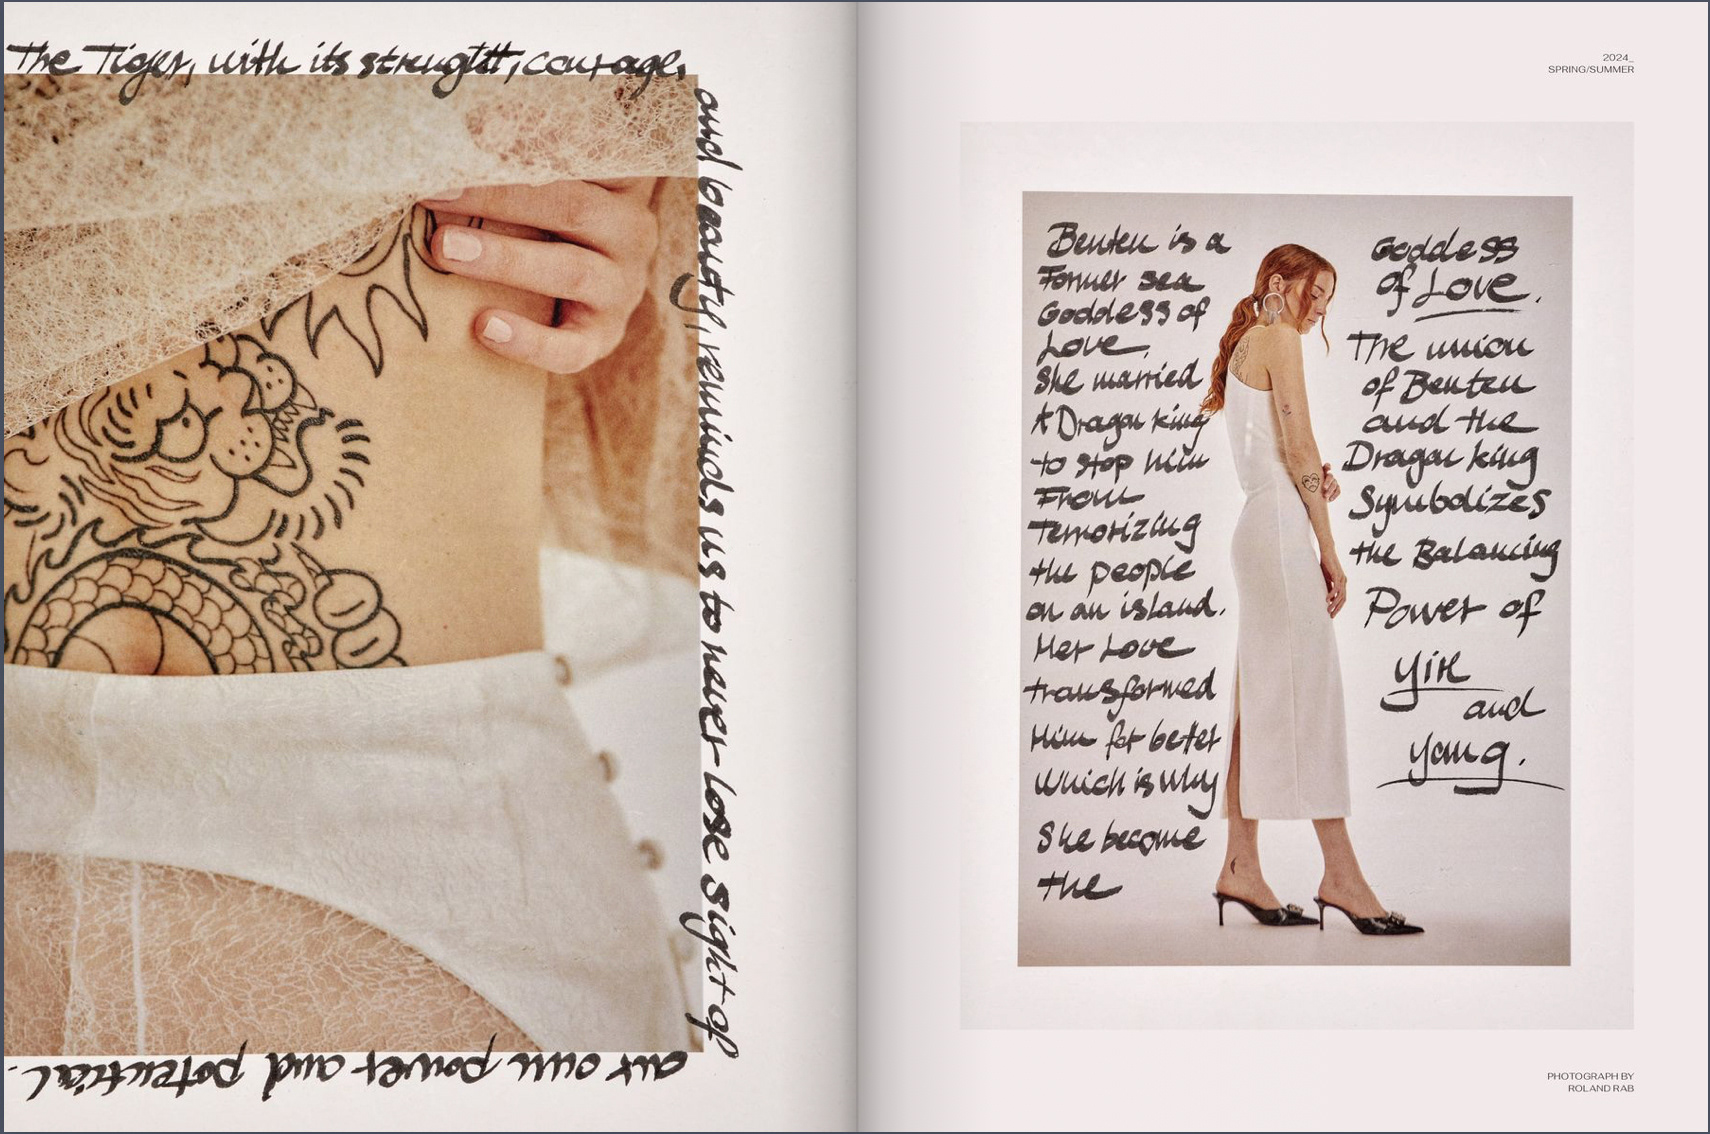 The Tiger, with its strenght, courage,
and beauty, reminds us to never lose sight of
our own power and potential.
2024_
SPRING/SUMMER
Benten is a
Former sea
Goddess of
Love.
She married
A Dragon king
to stop him
From
Terrorizing
the people
on an island.
Her Love
transformed
Him for better
which is why
She become
the
Goddess
of Love.
The union
of Benten
and the
Dragon king
Symbolizes
the Balancing
Power of
yin
and
yang.
PHOTOGRAPH BY
ROLAND RAB